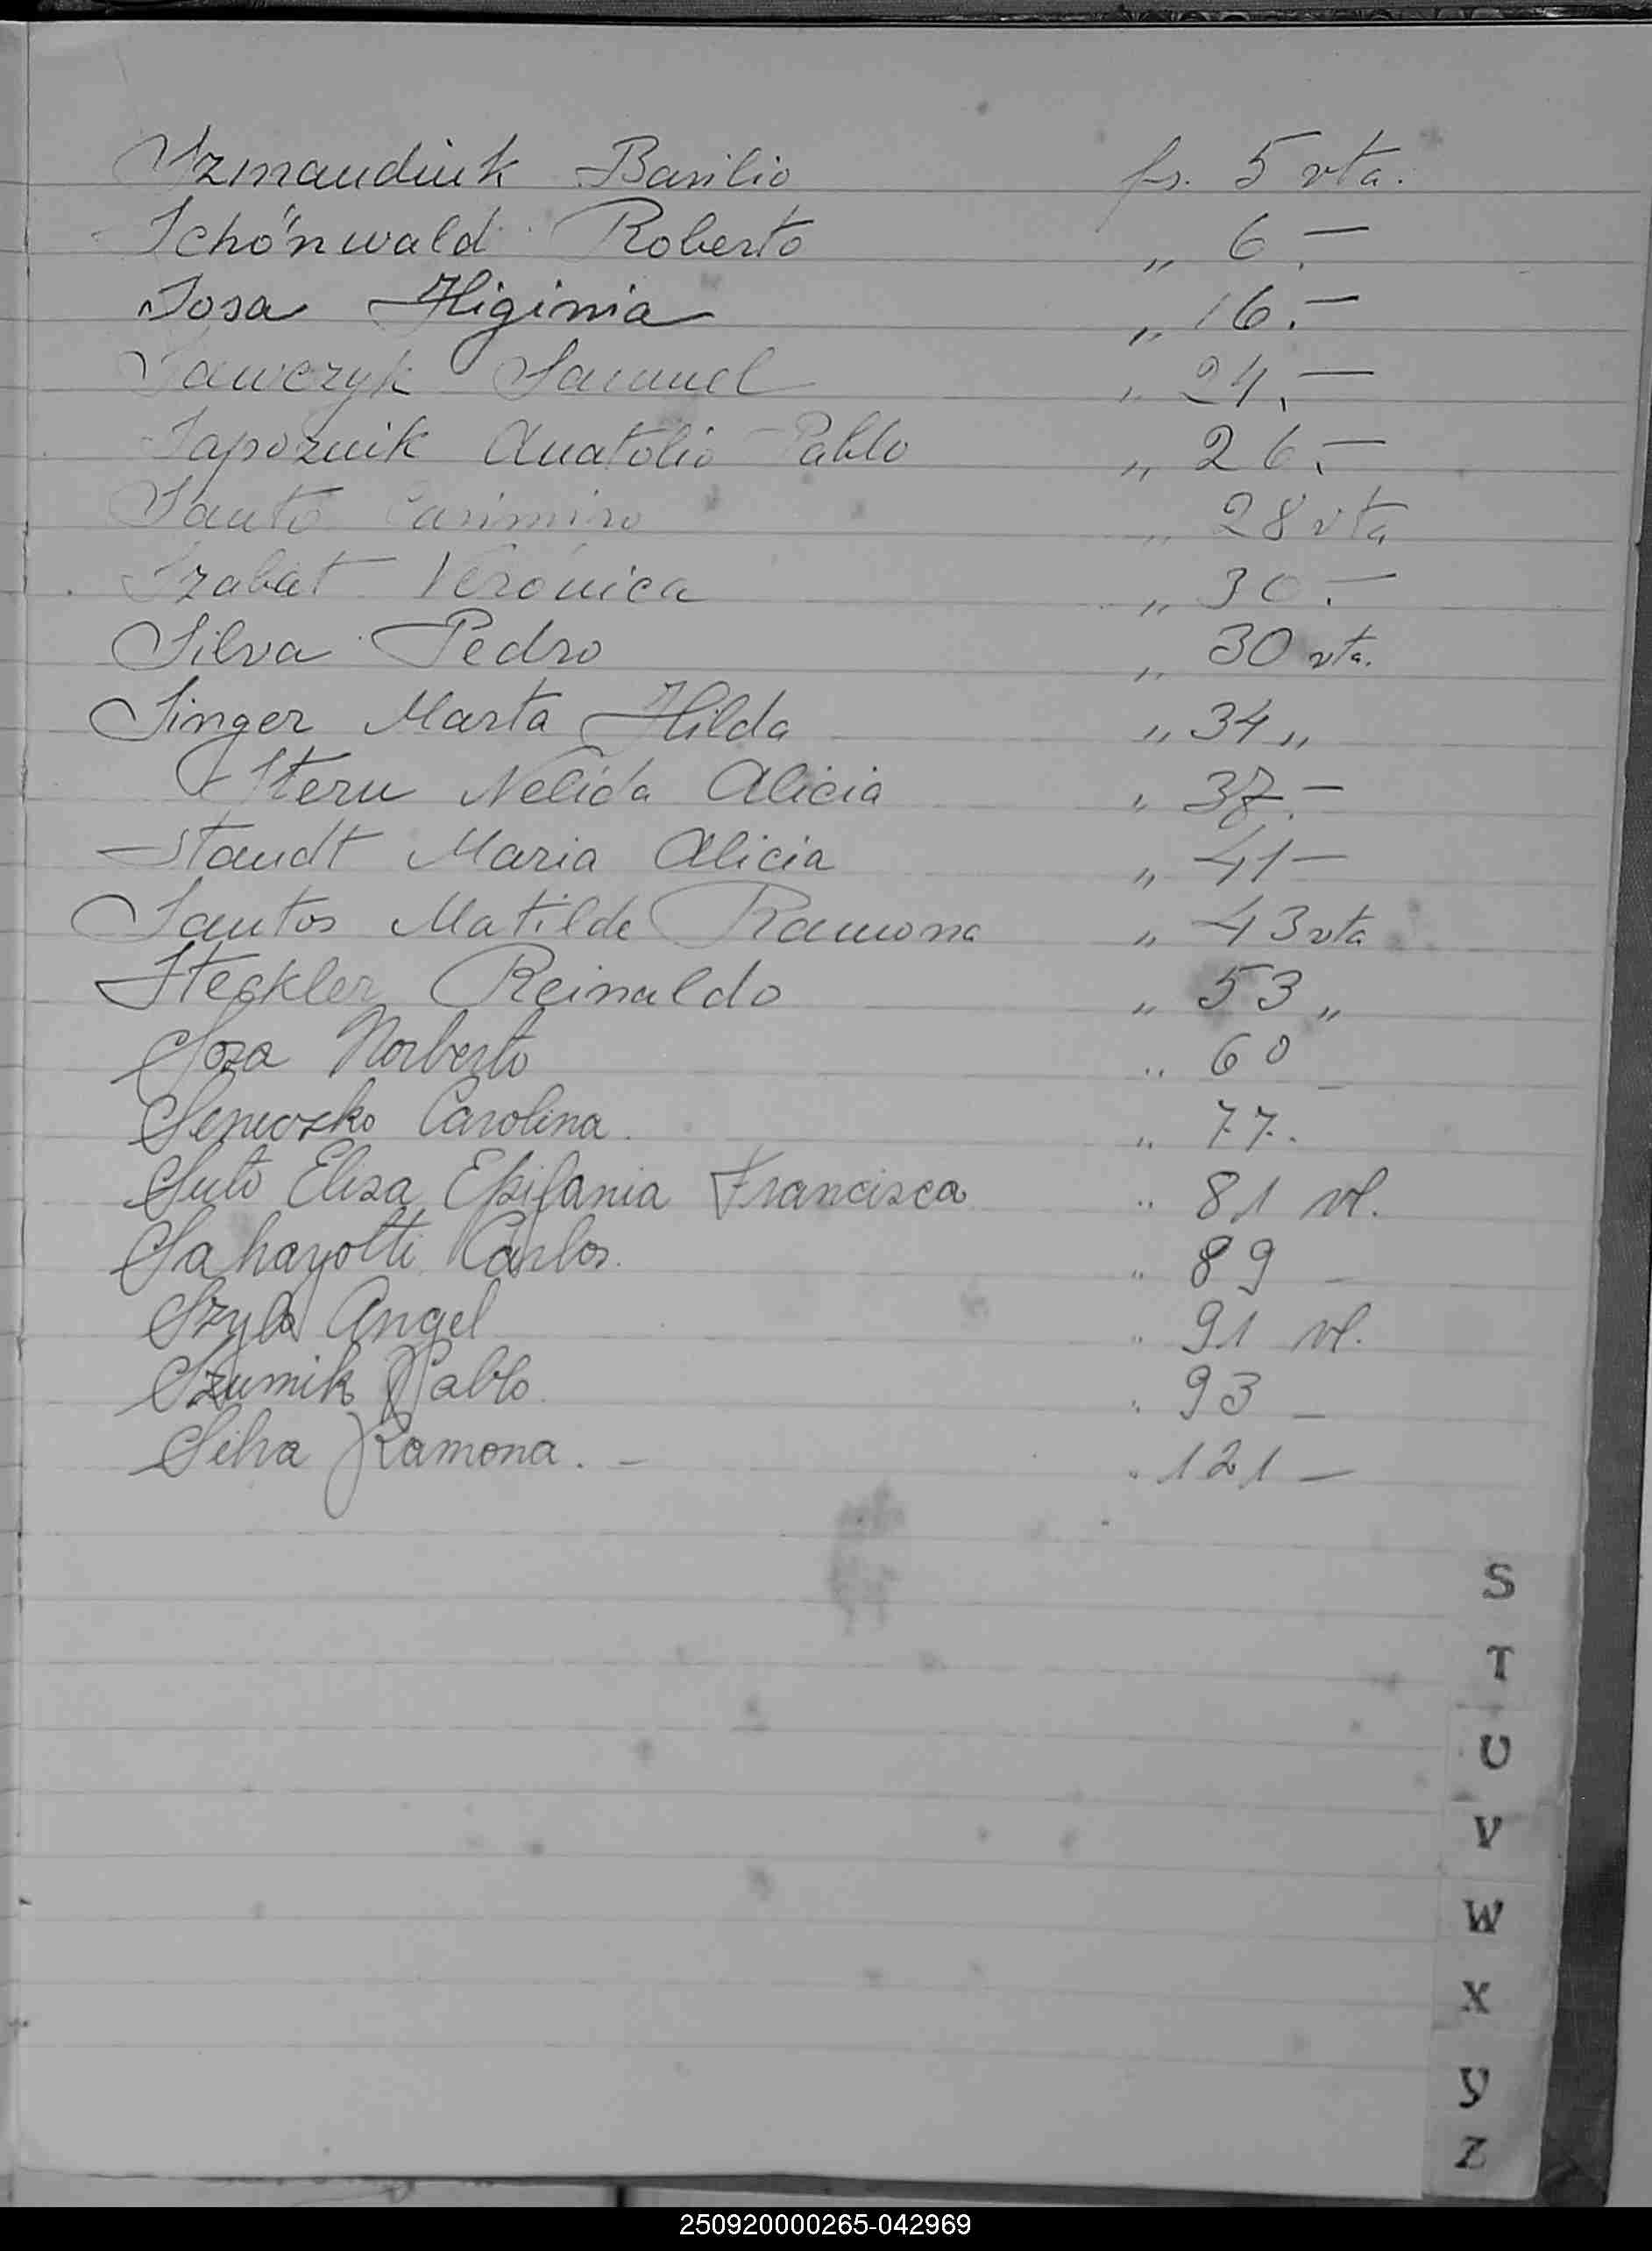 Szmaudiuk Basilio fs. 5 vta.
Schönwald Roberto „ 6.—
Sosa Higinia „ 16.—
Sawczyk Samuel „ 24.—
Sapoznik Anatolio Pablo „ 26.—
Santo Casimiro „ 28 vta
Szabat Verónica „ 30.—
Silva Pedro „ 30 vta.
Singer Marta Hilda „ 34 „
Stern Nelida Alicia „ 37.—
Staudt Maria Alicia „ 41—
Santos Matilde Ramona „ 43 vta
Steckler Reinaldo „ 53 „
Soza Norberto „ 60 —
Carolina „ 77.
Suto Elisa Epifania Francisca „ 81 vt.
Sahayotti Carlos. „ 89 —
Szyla Angel „ 91 vt.
Szumik Pablo „ 93 —
Silva Ramona. — „ 121 —
S
T
U
V
W
X
Y
Z
250920000265-042969